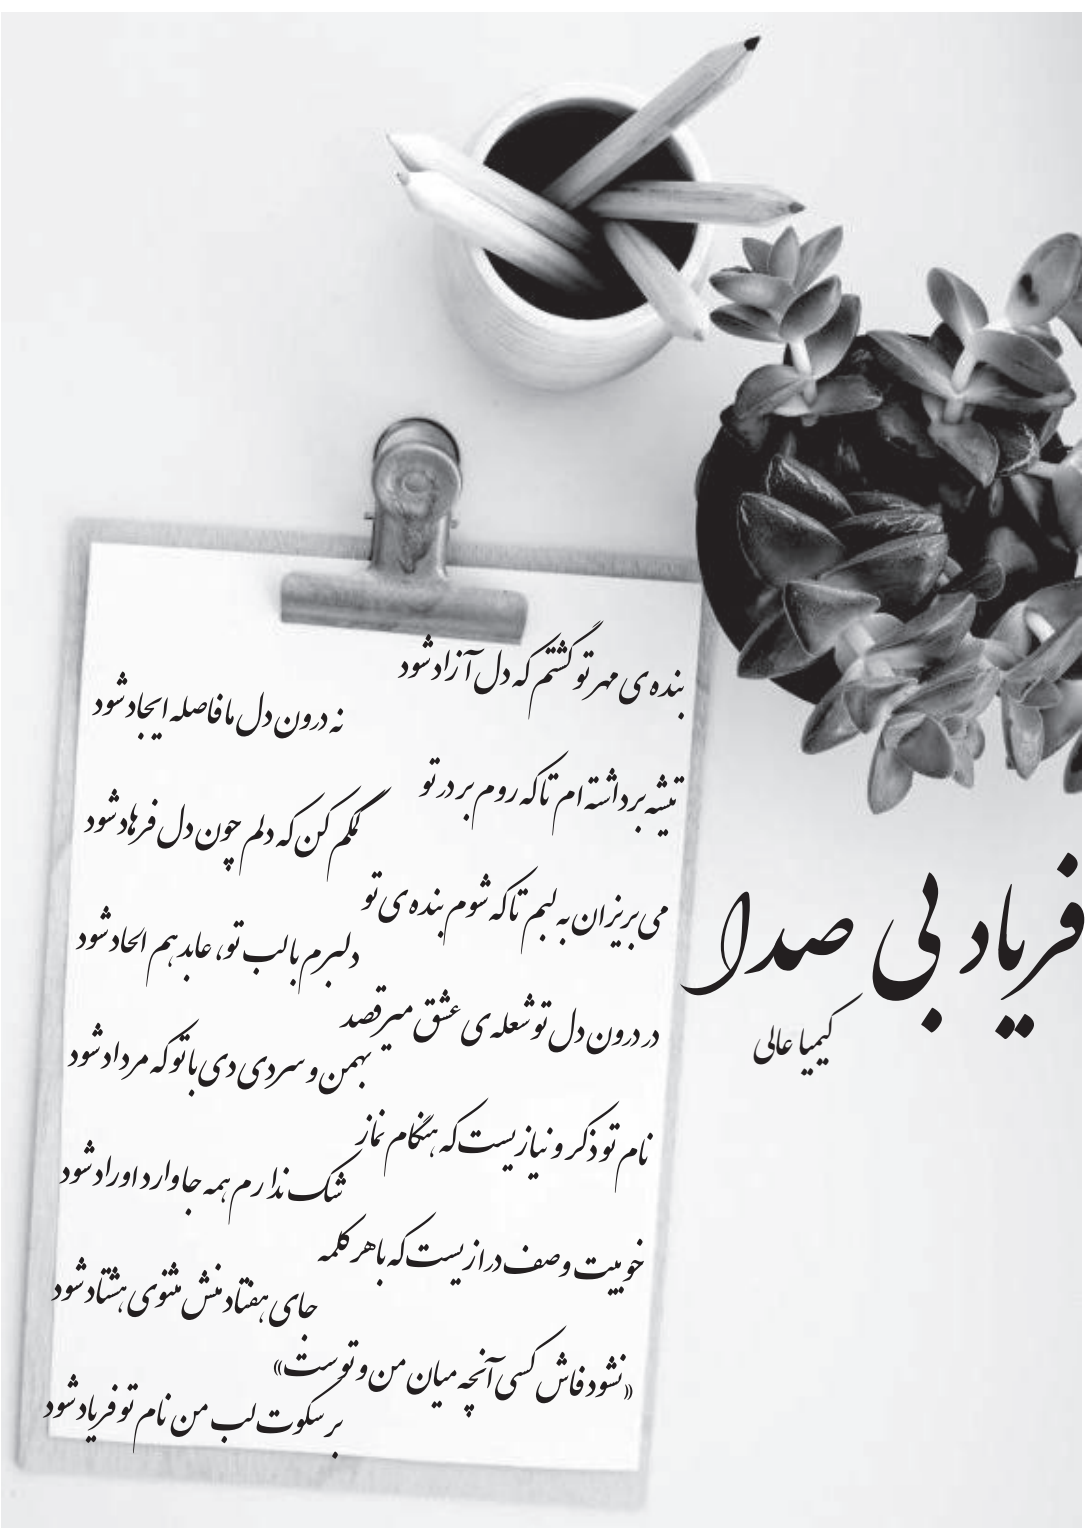 فریاد بی صدا
کیمیا عالی
بنده ی مهر تو گشتم که دل آزاد شود
نه درون دل ما فاصله ایجاد شود
تیشه برداشته ام تا که روم بر در تو
کمکم کن که دلم چون دل فرهاد شود
می بریزان به لبم تا که شوم بنده ی تو
دلبرم با لب تو، عابد هم الحاد شود
در درون دل تو شعله ی عشق میرقصد
بهمن و سردی دی با تو که مرداد شود
نام تو ذکر و نیازیست که هنگام نماز
شک ندارم همه جا وارد اوراد شود
خوبیت وصف درازیست که با هر کلمه
جای هفتاد منش مثنوی هشتاد شود
«نشود فاش کسی آنچه میان من و توست»
بر سکوت لب من نام تو فریاد شود